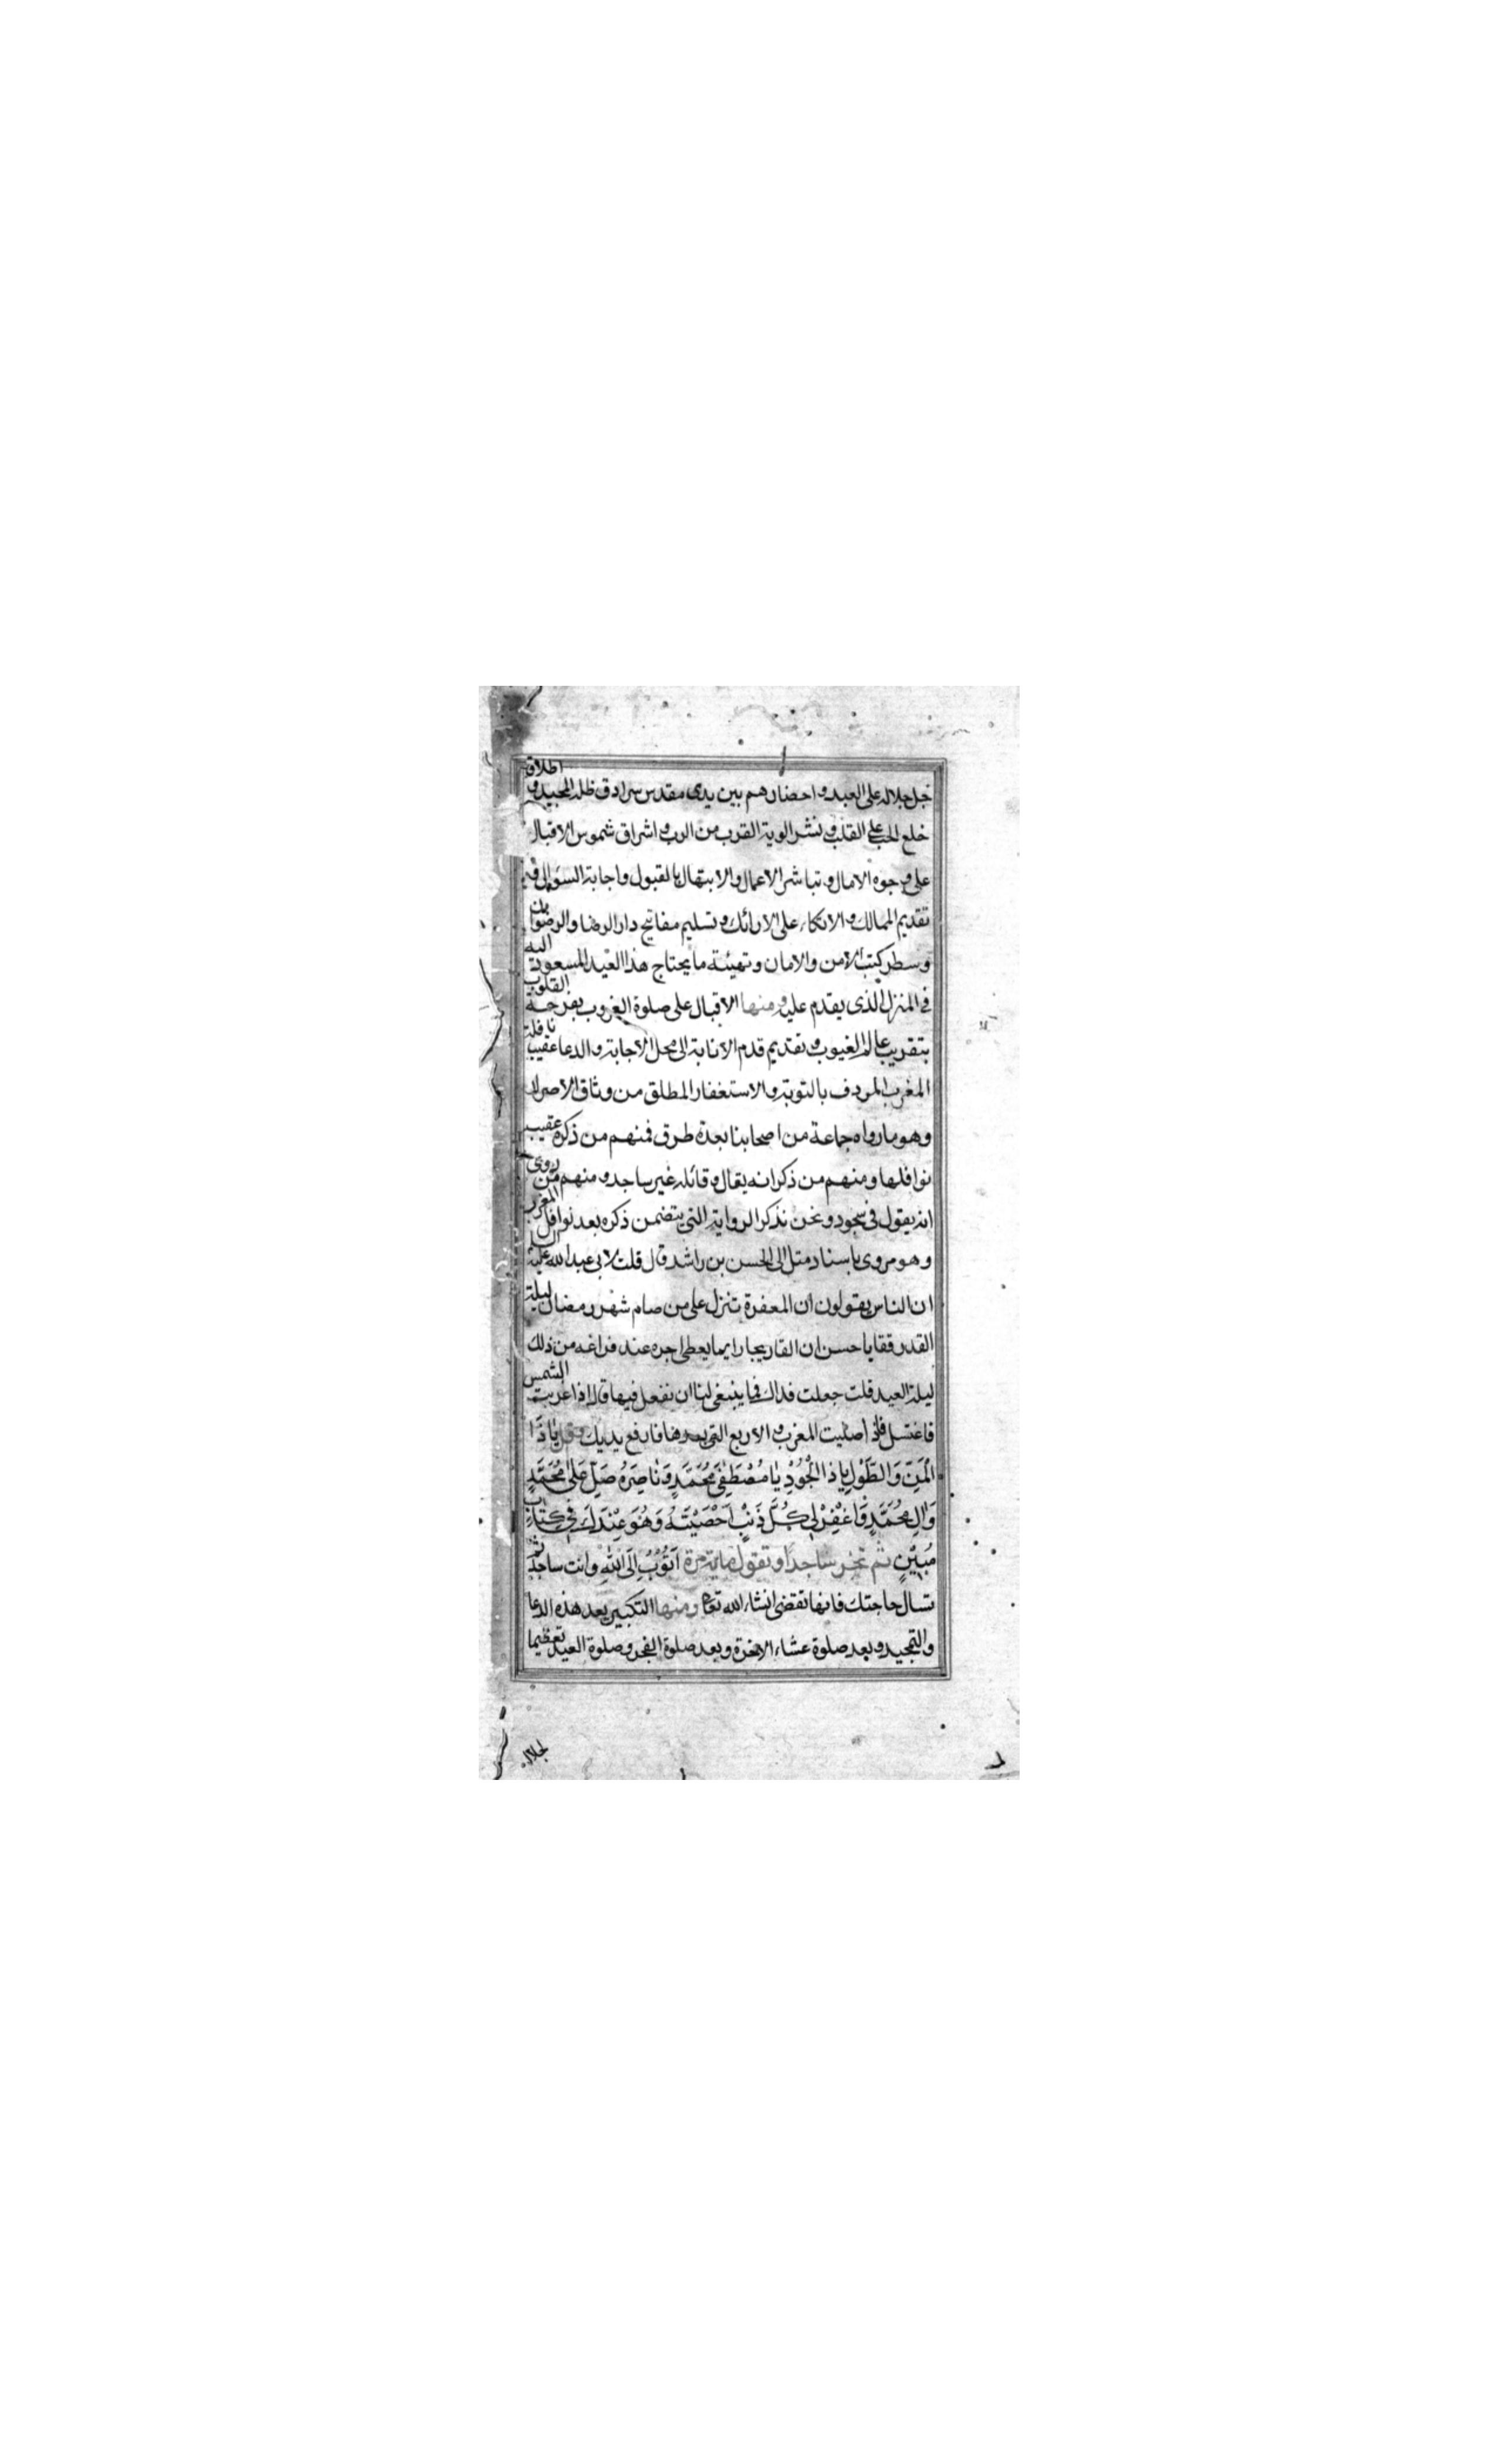 جل جلاله على العبد و احضارهم بين يدى مقدس سرادق ظله المجيد و اطلاق
خلع الحب على القلب و نشر الوية القرب من الرب و اشراق شموس الاقبال
على وجوه الامال و تباشر الاعمال و الابتهال بالقبول و اجابة السؤال و
تقديم الممالك و الاتكاء على الارائك و تسليم مفاتيح دار الرضا و الرضوان
و سطر كتب الامن و الامان و تهيئة ما يحتاج هذا العبد المسعود اليه
فى المنزل الذى يقدم عليه و منها الاقبال على صلوة الغروب بفرحة القلوب
بتقريب عالم الغيوب و تقديم قدم الانابة الى محل الاجابة و الدعا عقيب نافلة
المغرب المردف بالتوبة و الاستغفار المطلق من وثاق الاصرار
و هو ما رواه جماعة من اصحابنا بعدة طرق فمنهم من ذكره عقيب
نوافلها و منهم من ذكر انه يقال و قائله غير ساجد و منهم من روى
انه يقول فى سجود و نحن نذكر الرواية التى يتضمن ذكره بعد نوافل المغرب
و هو مروى باسناد متصل الى الحسن بن راشد قال قلت لابى عبد الله عليه السلم
ان الناس يقولون ان المغفرة تنزل على من صام شهر رمضان ليلة
القدر فقال يا حسن ان القاريجار ايما يعطى اجره عند فراغه من ذلك
ليلة العيد قلت جعلت فداك فما ينبغى لنا ان نفعل فيها قال اذا غربت الشمس
فاغتسل فاذا صليت المغرب و الاربع التى بعدها فارفع يديك و قل يٰا ذَا
الْمَنِّ وَ الطَّوْلِ يٰا ذَا الْجُوْدِ يٰا مُصْطَفِىَ مُحَمَّدٍ وَ نٰاصِرَهُ صَلِّ عَلىٰ مُحَمَّدٍ
وَ اٰلِ مُحَمَّدٍ وَ اغْفِرْ لِى كُلَّ ذَنْبٍ اَحْصَيْتَهُ وَ هُوَ عِنْدَكَ فِى كِتٰابٍ
مُبِيْنٍ ثم تخر ساجدا و تقول مائة مرة اَتُوْبُ اِلَى اللهِ و انت ساجد ثم
تسال حاجتك فانها تقضى انشاء الله تعا و منها التكبير بعد هذه الدعا
و التمجيد و بعد صلوة عشاء الاخرة و بعد صلوة الفجر و صلوة العيد تعظيما
لجلاله